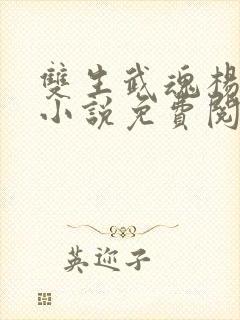 雙生武魂楊
小說免費閱
英迩子